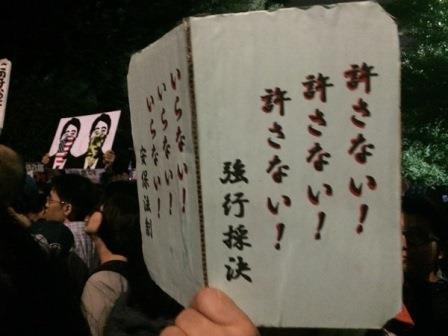 許さない!
許さない!
許さない!
強行採決
いらない!
いらない!
いらない!
安保法制